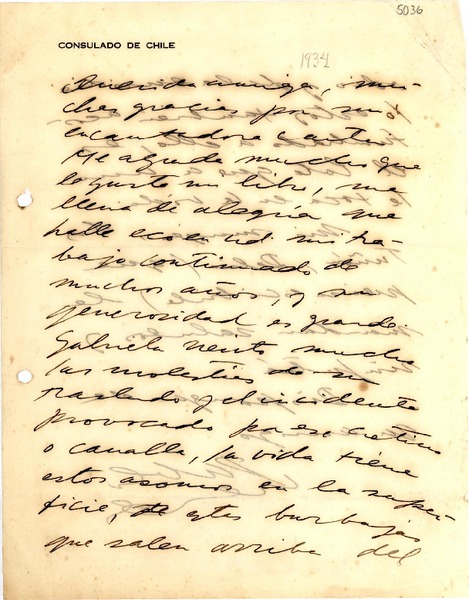 5036
CONSULADO DE CHILE
1934
Querida amiga, mu-
chas gracias por su
encantadora carta.
Me agrada mucho que
le guste mi libro, me
llena de alegría que
halle eco en Ud. mi tra-
bajo continuado de
muchos años, y su
generosidad es grande
Gabriela siento mucho
las molestias de su
traslado y el incidente
provocado por ese cretino
o canalla, la vida tiene
estos asomos en la super-
ficie, de estas burbujas
que salen arriba del